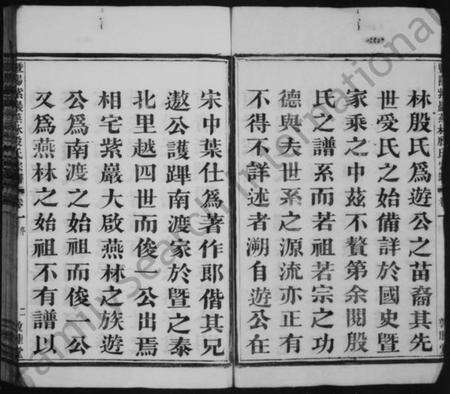 林殷氏爲遊公之苗裔其先
世受氏之始備詳於國史曁
家乘之中茲不贅第余閱殷
氏之譜系而若若宗之功
德與夫世系之源流亦正有
不得不詳述者溯自遊公在
宋中葉仕爲著作郎偕其兄
遨公護蹕南渡家於曁之泰
北里越四世而俊一公出焉
相宅紫巖大啟燕林之族遊
公爲南渡之始祖而俊 公
又爲燕林之始祖不有譜以